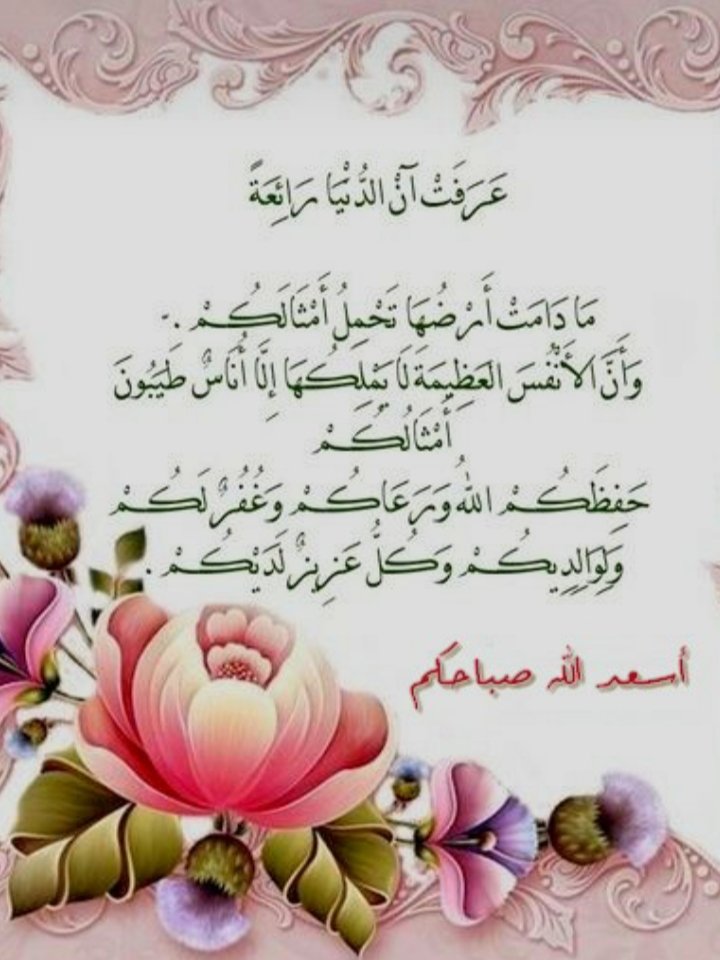 عَرَفَتْ آنْ الدُّنْيَا رَائِعَةً
مَا دَامَتْ أَرْضُهَا تَحْمِلُ أَمْثَالَكُمْ .
وَأَنَّ الأَنْفُسَ العَظِيمَةَ لَا يَمْلِكُهَا إِلَّا أُنَاسٌ طَيِّبُونَ
أَمْثَالُكُمْ
حَفِظَكُمْ اللهُ وَرَعَاكُمْ وَغُفُرٌ لَكُمْ
وَلِوَالِدِيكُمْ وَكُلُّ عَزِيزٌ لَدَيْكُمْ .
أسعد الله صباحكم